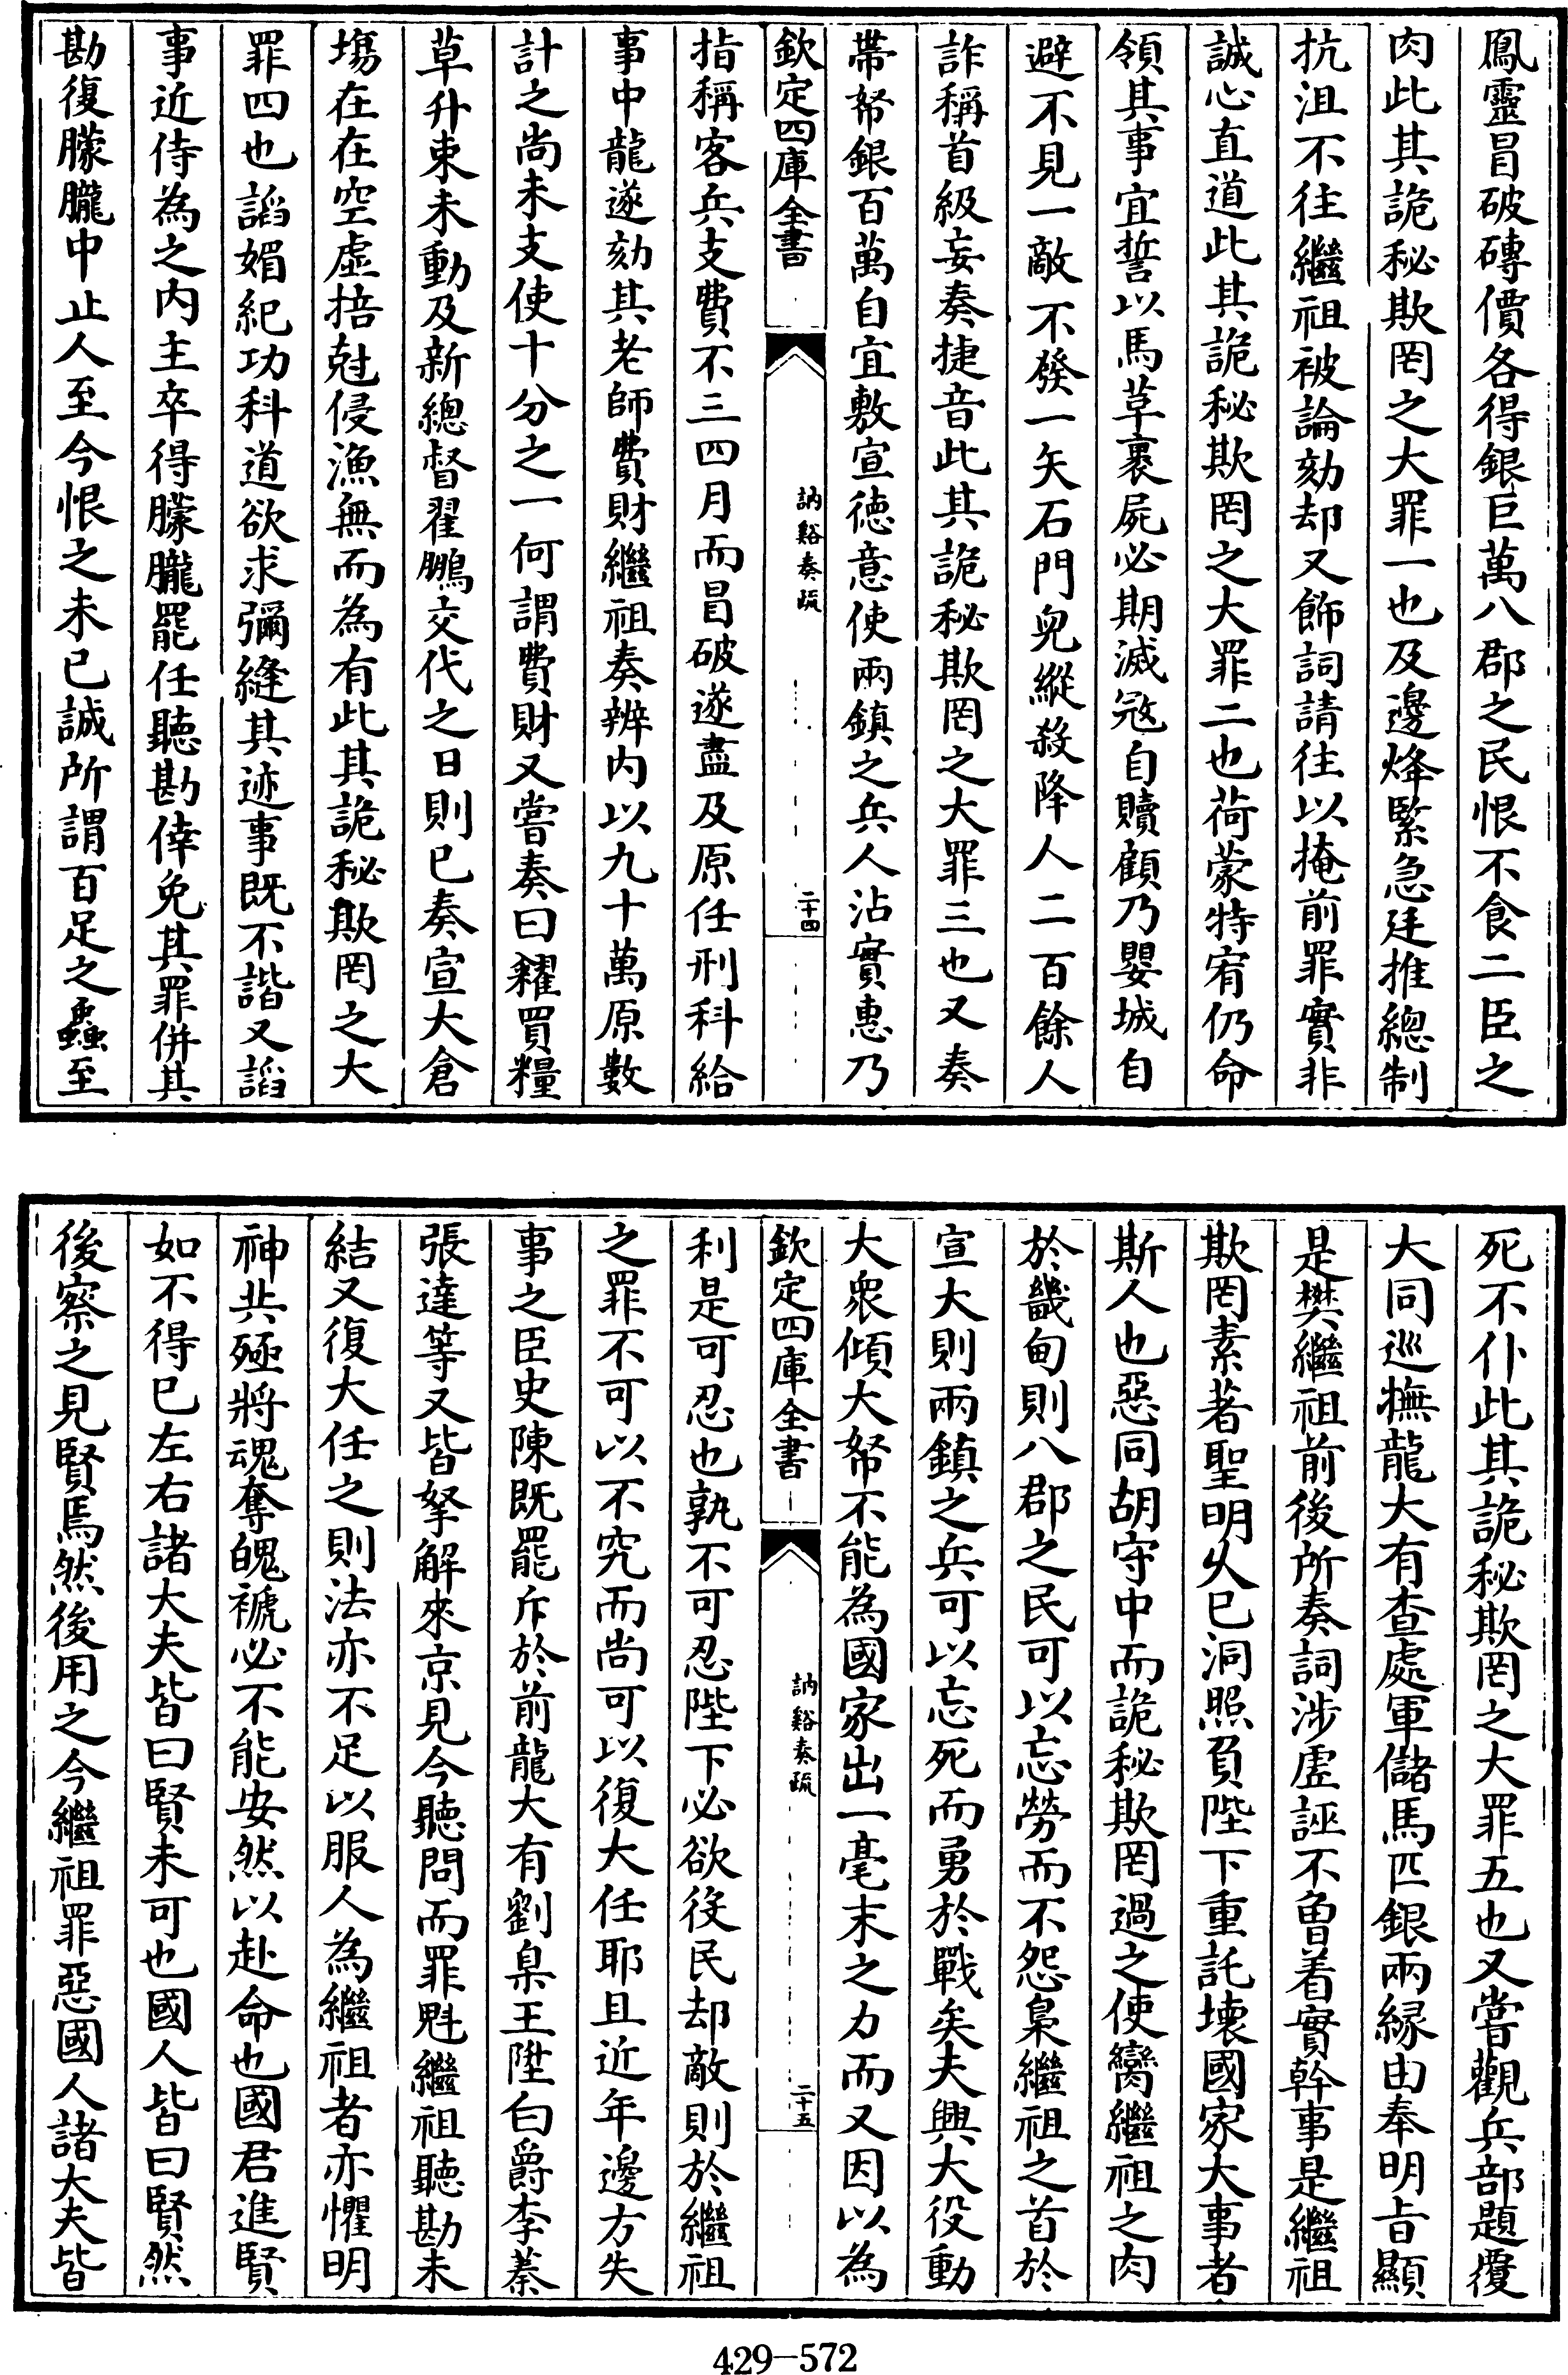 鳳靈冒破磚價各得銀巨萬八郡之民恨不食二臣之
肉此其詭秘欺罔之大罪一也及邊烽緊急廷推總制
抗沮不往繼祖被論劾却又飾詞請往以掩前罪實非
誠心直道此其詭秘欺罔之大罪二也荷蒙特宥仍命
領其事宜誓以馬草裹屍必期滅寇自贖顧乃嬰城自
避不見一敵不發一矢石門兒縱殺降人二百餘人
詐稱首級妄奏捷音此其詭秘欺罔之大罪三也又奏
帶帑銀百萬自宜敷宣德意使兩鎮之兵人沾實惠乃
欽定四庫全書
訥谿奏疏
二十四
指稱客兵支費不三四月而冒破遂盡及原任刑科給
事中龍遂劾其老師費財繼祖奏辨内以九十萬原數
計之尚未支使十分之一何謂費財又嘗奏曰糴買糧
草升束未動及新總督翟鵬交代之日則已奏宣大倉
塲在在空虛掊尅侵漁無而為有此其詭秘欺罔之大
罪四也謟媚紀功科道欲求彌縫其迹事既不諧又謟
事近侍為之内主卒得朦朧罷任聽勘倖免其罪併其
勘復朦朧中止人至今恨之未已誠所謂百足之蟲至
死不仆此其詭秘欺罔之大罪五也又嘗觀兵部題覆
大同巡撫龍大有查處軍儲馬匹銀兩緣由奉明旨顯
是樊繼祖前後所奏詞涉虛誣不曾着實幹事是繼祖
欺罔素著聖明乆已洞照負陛下重託壞國家大事者
斯人也惡同胡守中而詭秘欺罔過之使臠繼祖之肉
於畿甸則八郡之民可以忘勞而不怨梟繼祖之首於
宣大則兩鎮之兵可以忘死而勇於戰矣夫興大役動
大衆傾大帑不能為國家出一毫末之力而又因以為
欽定四庫全書
訥谿奏疏
二十五
利是可忍也孰不可忍陛下必欲役民却敵則於繼祖
之罪不可以不究而尚可以復大任耶且近年邊方失
事之臣史陳既罷斥於前龍大有劉臬王陞白爵李蓁
張達等又皆拏解來京見今聽問而罪魁繼祖聽勘未
結又復大任之則法亦不足以服人為繼祖者亦懼明
神共殛將魂奪魄褫必不能安然以赴命也國君進賢
如不得已左右諸大夫皆曰賢未可也國人皆曰賢然
後察之見賢焉然後用之今繼祖罪惡國人諸大夫皆
429-572